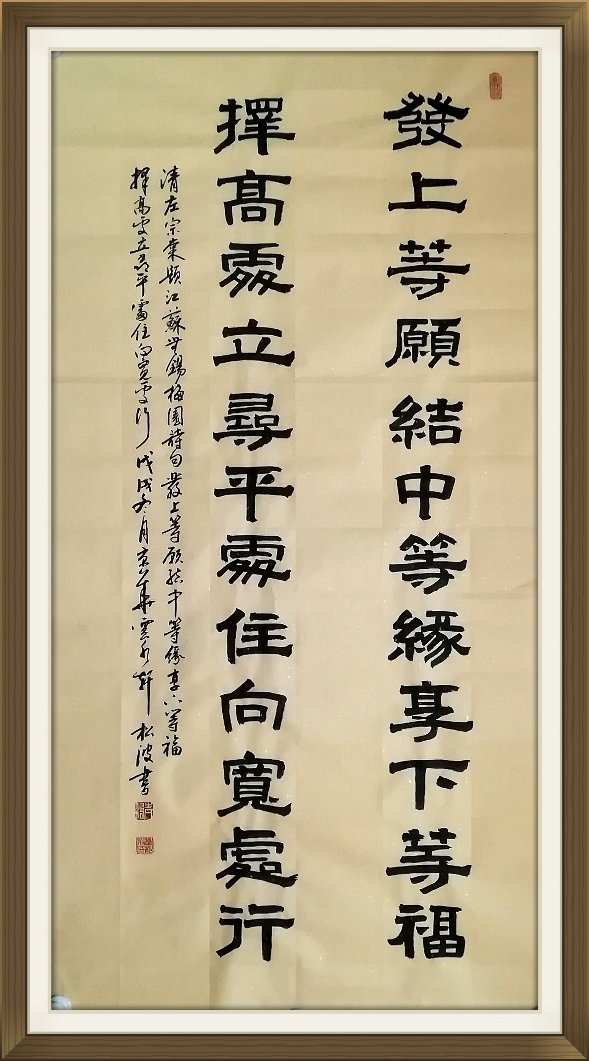 發上等願結中等緣享下等福
擇高處立尋平處住向寬處行
清左宗棠題江蘇無錫梅園詩句發上等願結中等緣享下等福
擇高處立尋平處住向寬處行 戊戌冬月京華雲水軒 松波書